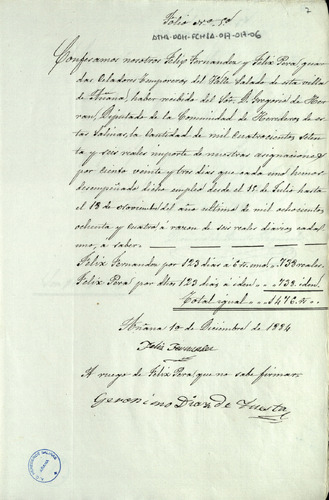 Folio nº 5º
7
ATHA-DAH-FCHLA-017-017-06
Confesamos nosotros Felix Fernandez y Felix Peral, guar-
das Celadores temporeros del Valle Salado de esta villa
de Añana, haber recibido del Sor. D. Gregorio de Her-
ran, Diputado de la Comunidad de Herederos de es-
tas Salinas, la Cantidad de mil Cuatrocientos seten-
ta y seis reales importe de nuestras asignaciones
por ciento veinte y tres dias que cada uno hemos
desempeñado dicho empleo desde el 1º de Julio hasta
el 13 de Noviembre del año ultimo de mil ochocientos
ochenta y cuatro, á razon de seis reales diarios cada
uno, á saber
Felix Fernandez por 123 dias á 6 rs. uno 738 reales.
Felix Peral por dhos 123 dias á iden 738. iden
Total igual 1476. rs
Añana 10 de Diciembre de 1884
Felix Fernandez
A ruego de Felix Peral que no sabe firmar.
Geronimo Diaz de Tuesta